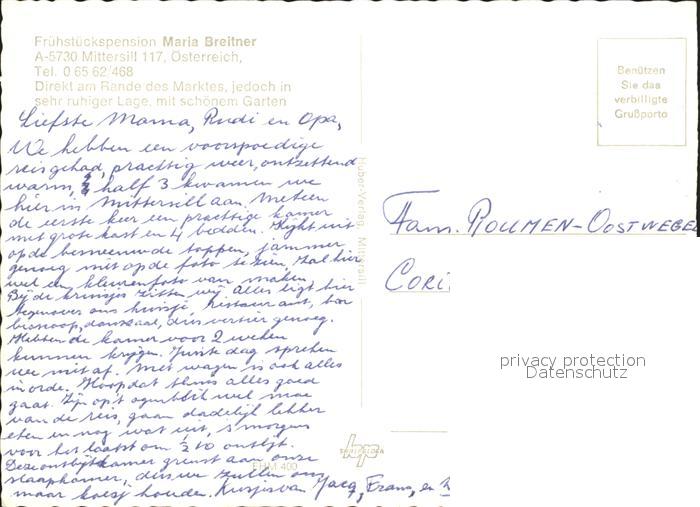 Frühstückspension Maria Breitner
A-5730 Mittersill 117, Österreich,
Tel. 0 65 62/468
Direkt am Rande des Marktes, jedoch in
sehr ruhiger Lage, mit schönem Garten
Liefste Mama, Rudi en Opa,
We hebben een voorspoedige
reis gehad, prachtig weer, ontzettend
warm, half 3 kwamen we
hier in Mittersill aan. Meteen
de eerste keer een prachtige kamer
met grote kast en 4 bedden. Zight uit
op de besneeuwde toppen, jammer
genoeg niet op de foto te zien, zal hier
wel een kleurenfoto van maken.
Bij de kruisjes zitten wij Alles ligt hier
tegenover ons huisje, Restaurant, bar
bioscoop, danszaal, dus vertier genoeg.
Hebben de kamer voor 2 weken
kunnen krijgen. Juiste dag spreken
we nit af. Met wagen is ook alles
in orde. Hoop dat thuis alles goed
gaat. Zijn op't ogenblik wel moe
van de reis, gaan dadelijk lekker
eten en nog wat uit, 's morgens
voor het laatst om ½ 10 ontbijt.
Deze ontbijtkamer grenst aan onze
slaapkamer, dus we zullen ons
maar koest houden. Kusjes van Jacq, Frans, en
Huber-Verlag, Mittersill
Benützen
Sie das
verbilligte
Grußporto
Fam. ROLLMEN-OOSTWEGEL
CORI
privacy protection
Datenschutz
EHM 400